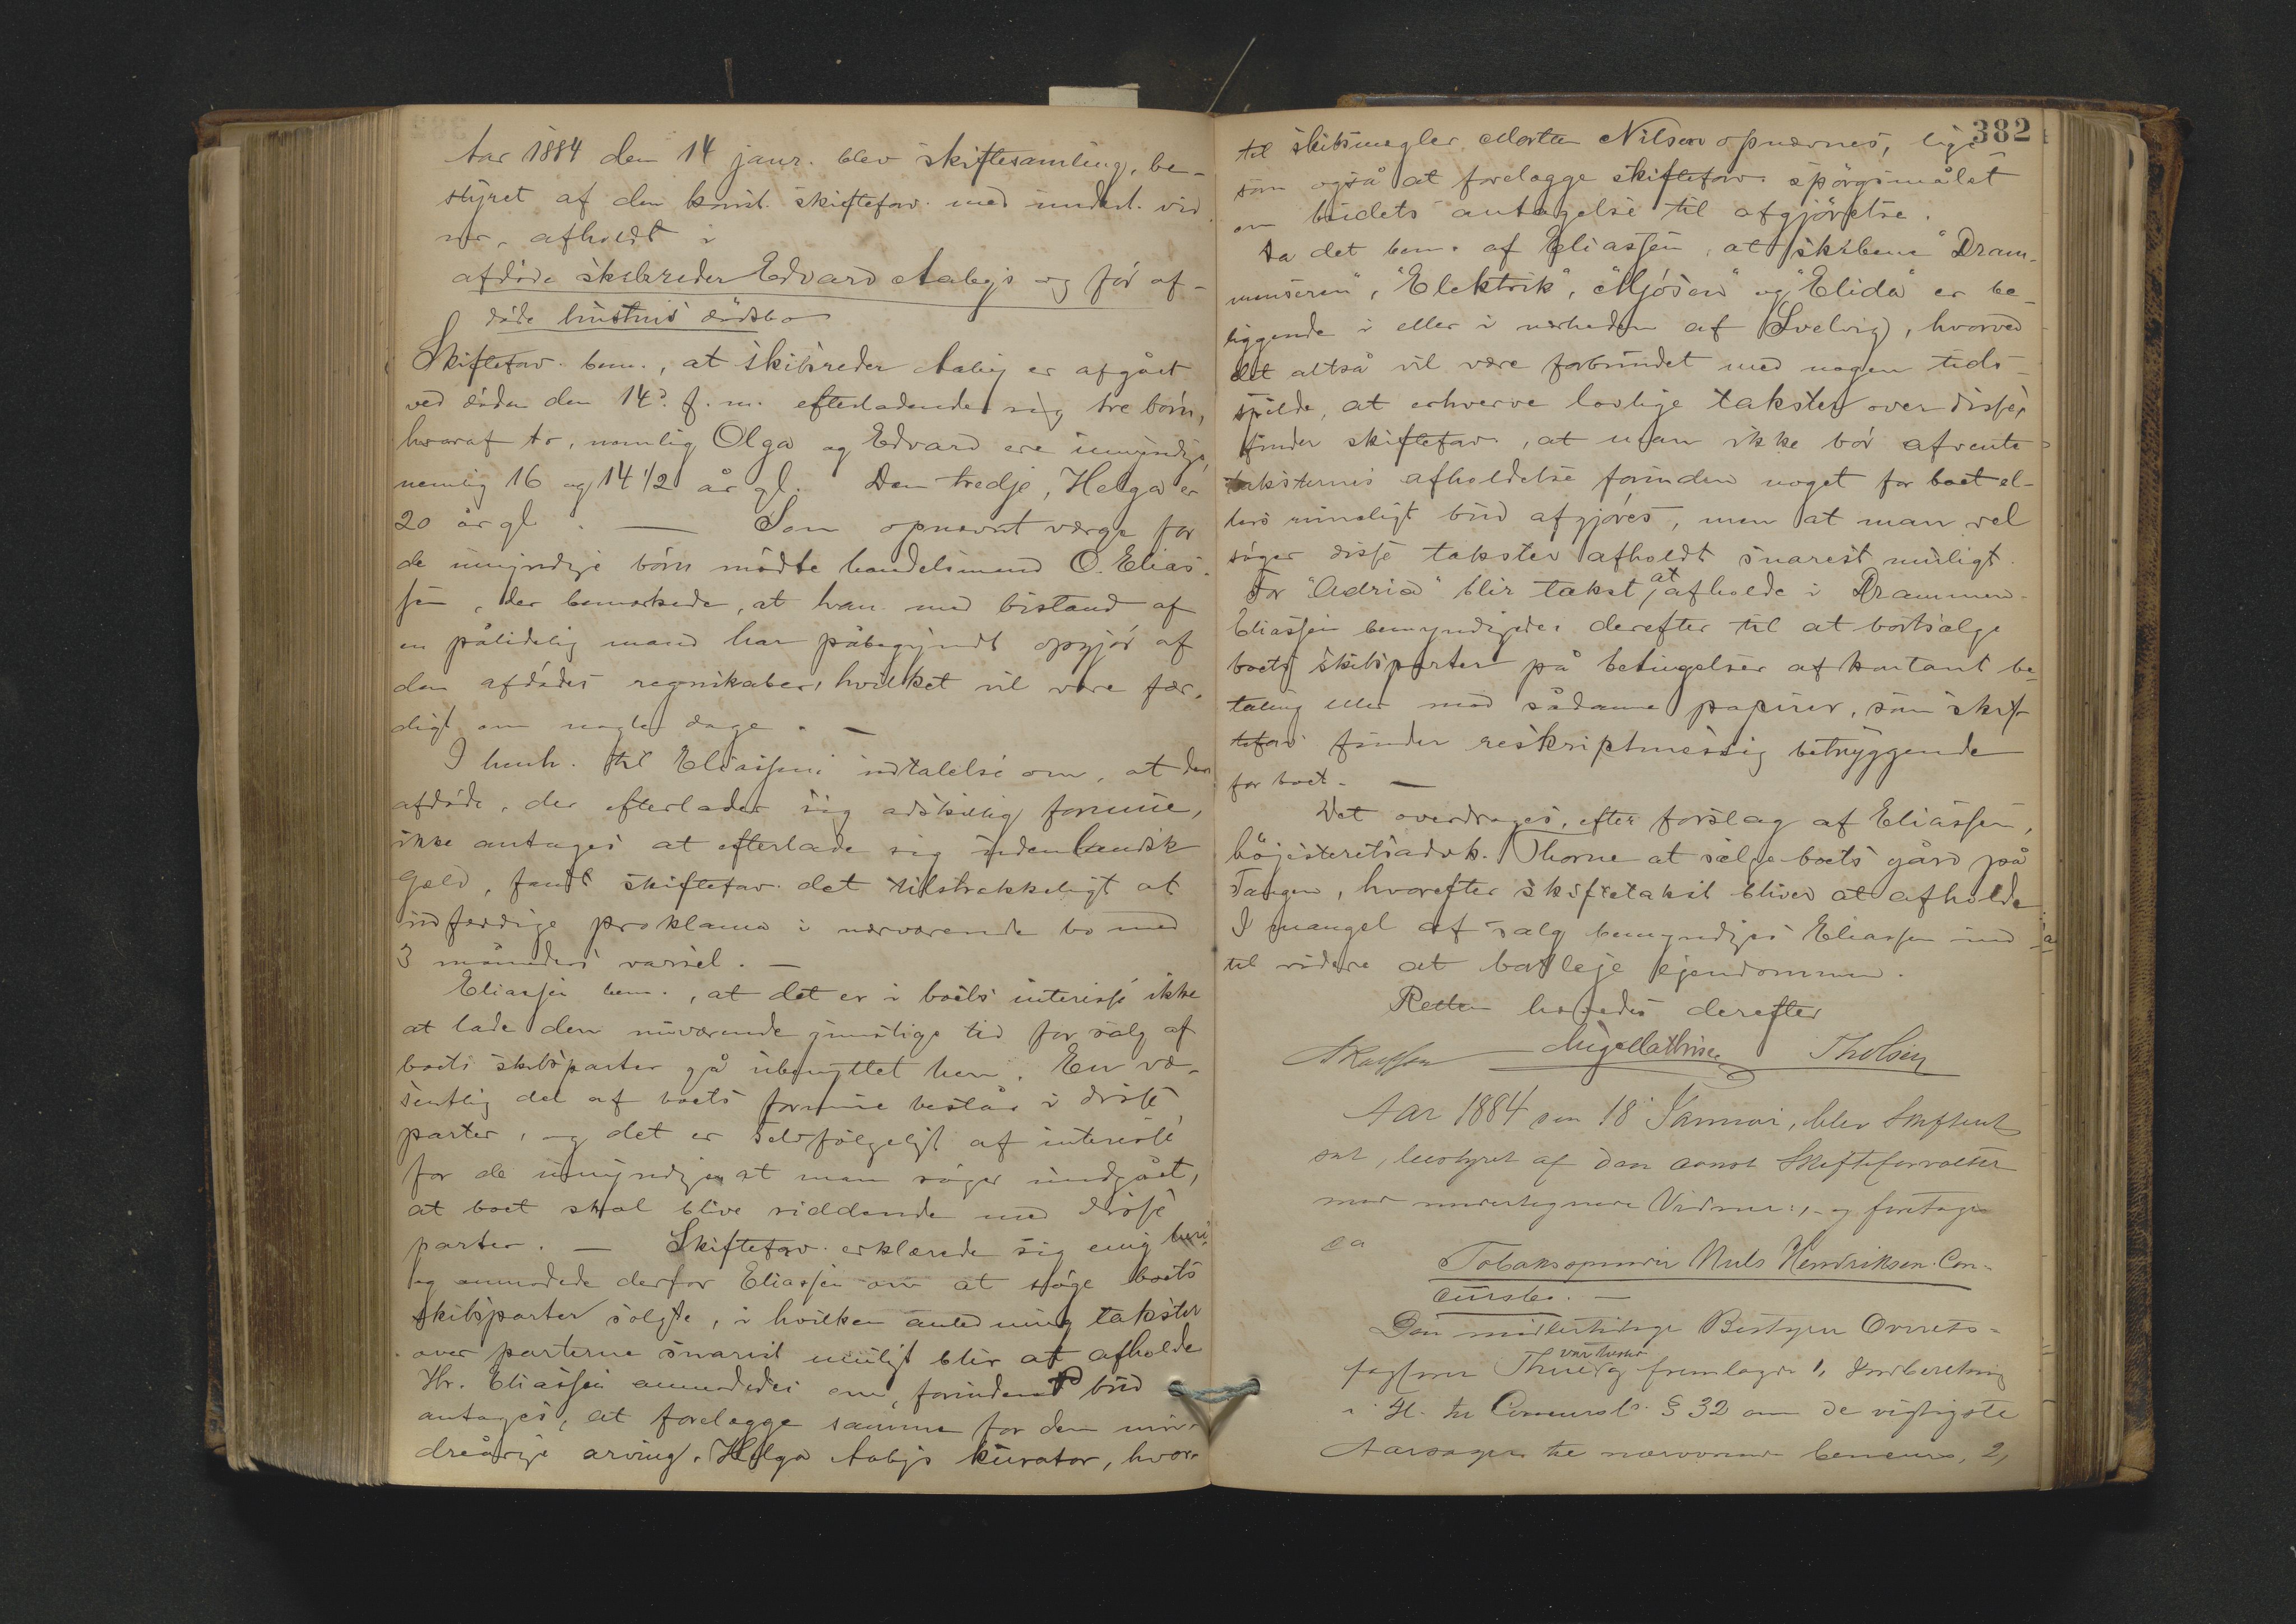 Aar 1884 den 14 janr. blev skiftesamling, be-
styret af den konst. skiftefov. med undert. vid
ner, afholdt i
afdöde skibsreder Edvard Aabys og för af-
döde hustrus dödsbo
Skiftefov. bem., at skibsreder Aaby er afgået
ved döden den 14d. f. m. efterladende sig tre börn,
hvoraf to, nemlig Olga og Edvard ere umyndige,
nemlig 16 og 14 1/2 år gl. Den tredje, Helga er
20 år gl. — Som opnævnt værge for
de umyndige börn mödte handelsmand O. Elias-
sen, der bemærkede, at han med bistand af
en pålidelig mand har påbegyndt opgjör af
den afdödes regnskaber, hvilket vil være fær-
digt om nogle dage. —
I henh. til Eliassens udtalelse om, at den
afdöde, der efterlader sig adskillig formue,
ikke antages at efterlade sig udenlandsk
gjæld, fandt skiftefov. det tilstrækkeligt at
udfærdige proklama i nærværende bo med
3 måneders varsel. —
Eliassen bem., at det er i boets interesse ikke
at lade den nuværende gunstige tid for salg af
boets skibsparter gå ubenyttet hen. En væ-
sentlig del af boets formue består i disse
parter, og det er selvfölgeligt af interesse
for de umyndige at man söger undgået,
at boet skal blive siddende med disse
parter. — Skiftefov. erklærede sig enig heri
og anmodede derfor Eliassen om at söge boets
skibsparter solgte, i hvilken anledning takster
over parterne snarest muligt blir at afholde
Hr. Eliassen anmodedes om, forinden bud
antages, at forelægge samme for den min-
dreårige arving, Helga Aabys kurator, hvor-
382
til skibsmegler Morten Nilsen opnævnes, lige
som også at forelægge skiftefov. spörgsmålet
om budets antagelse til afgjörelse.
Da det bem. af Eliassen, at skibene "Dram-
menseren", "Elektrik", "Mjösen" og "Elida" er be-
liggende i eller i nærheden af Svelvig, hvorved
det altså vil være forbundet med nogen tids-
spilde, at erhverve lovlige takster over disse,
finder skiftefov., at man ikke bör afvente
taksternes afholdelse forinden noget for boet el-
lers rimeligt bud afgjöres, men at man vel
söger disse takster afholdt snarest muligt.
For "Adria" blir takst at afholde i Drammen.
Eliassen bemyndigedes derefter til at bortsælge
boets skibsparter på betingelser af kontant be-
taling eller mod sådanne papirer, som skif-
tefov. finder reskriptmessig betryggende
for boet. —
Det overdrages, efter forslag af Eliassen,
höjesteretsadvk. Thorne at sælge boets gård på
Tangen, hvorefter skiftetakst bliver at afholde
I mangel af salg bemyndiges Eliassen ind
til videre at bortleje ejendommen.
Retten hævedes derefter
Aar 1884 den 18 Januar, blev Skifteret
sat, bestyret af den const Skifteforvalter
med undertegnede Vidner:, og foretages
ca
Tobaksspinder Nils Hendriksen Con-
cursbo. —
Den midlertidige Bestyrer Overrets-
sagförer Thue var tilstede og fremlagde 1, Indberetning
i H. til Concursl. § 32 om de vigtigste
Aarsager til nærværende Concurs, 2,